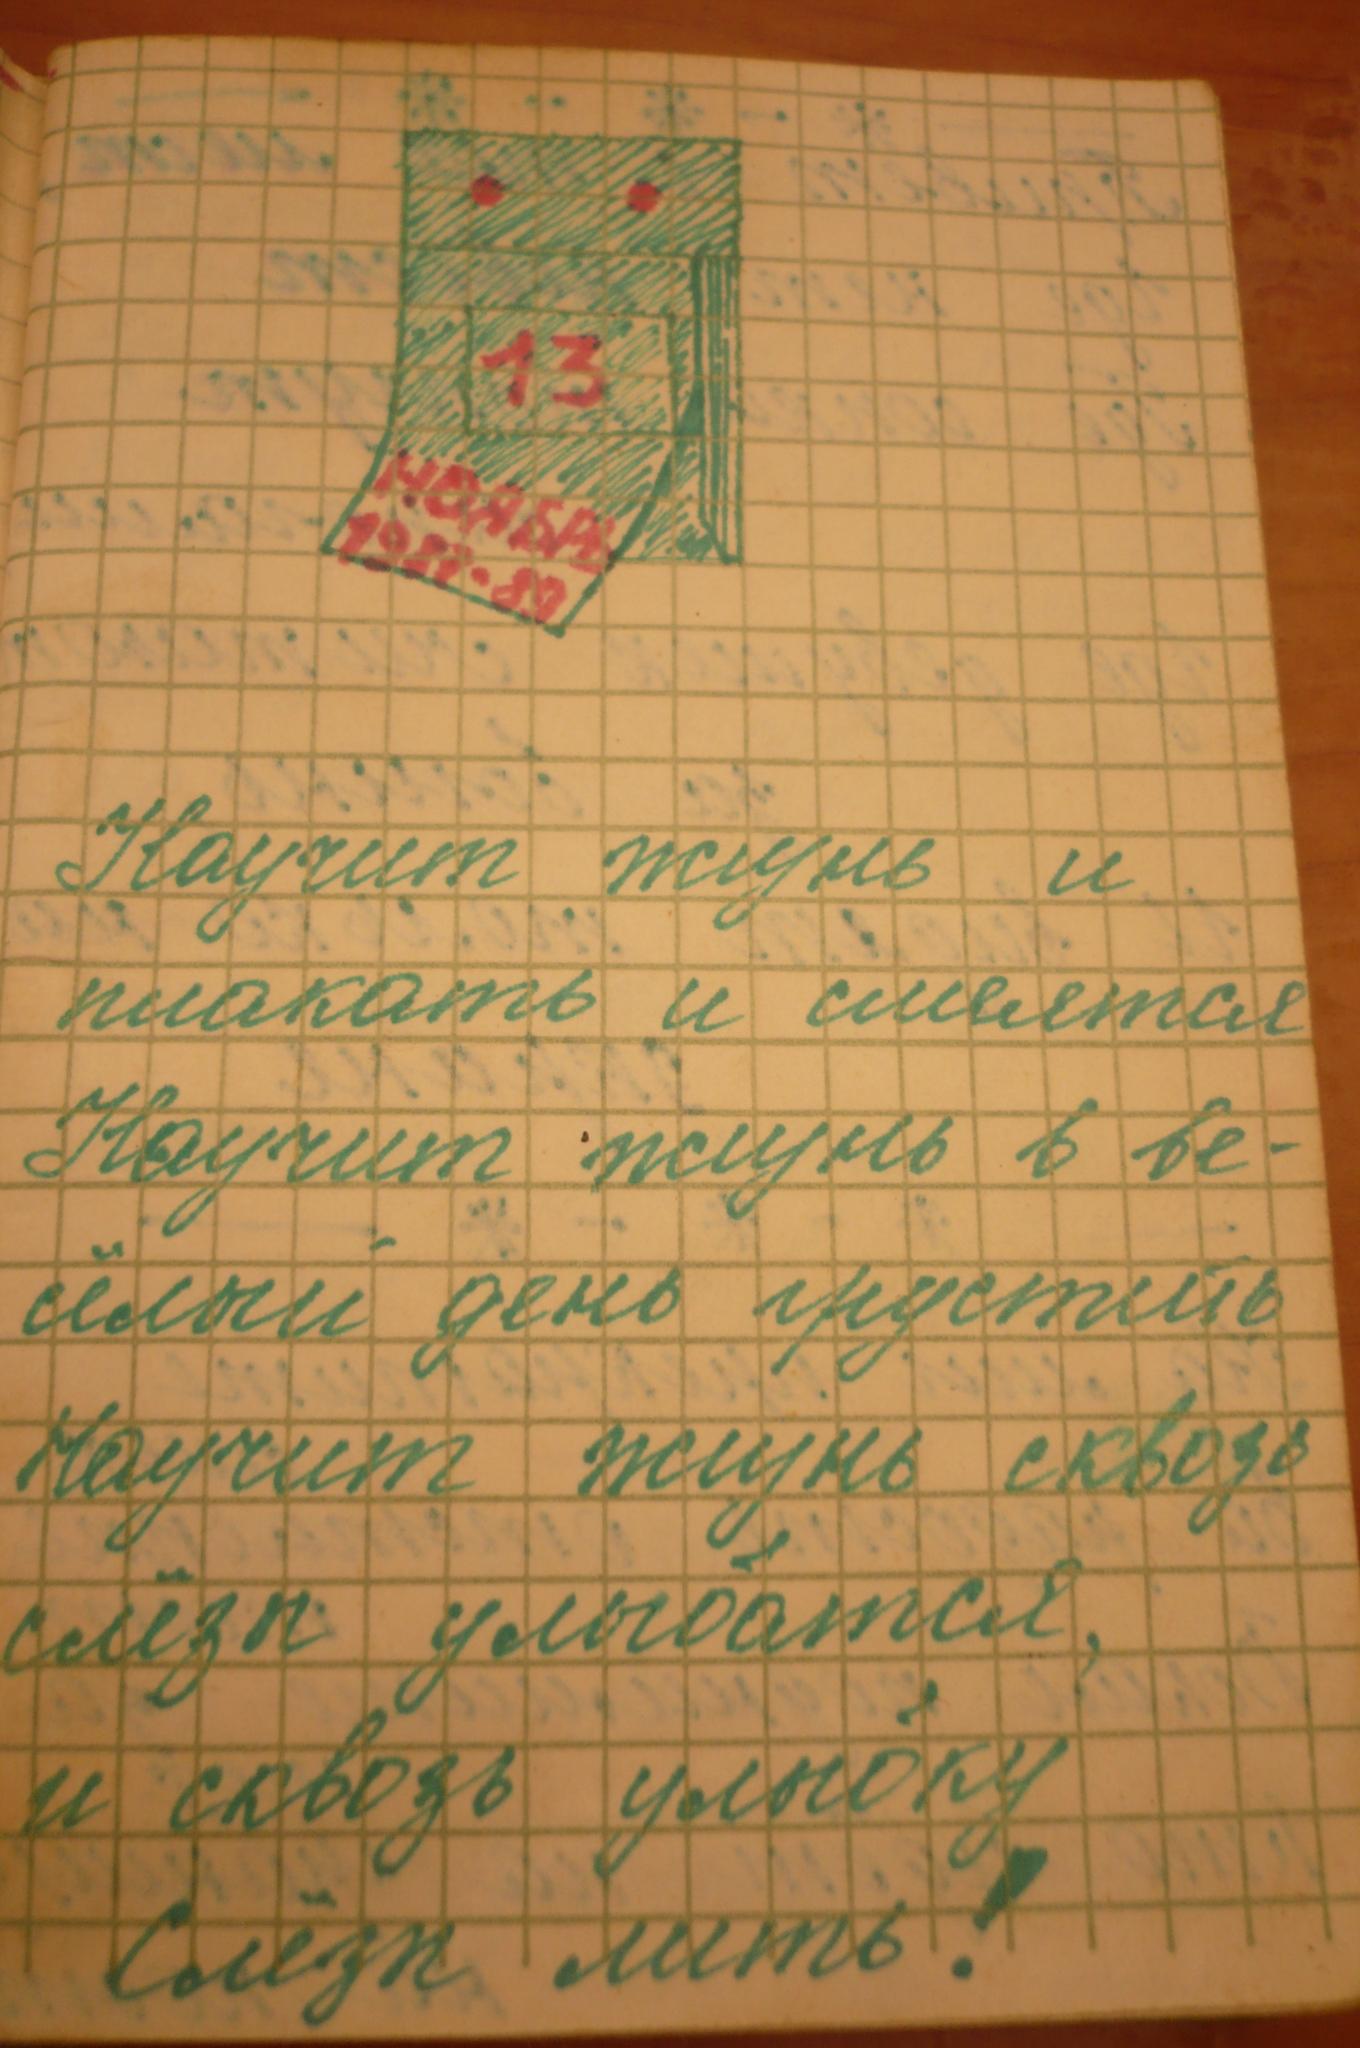 13
НОЯБРЬ
1987-89
Научит жизнь и
плакать и смеятся
Научит жизнь в ве-
сёлый день грустить
Научит жизнь сквозь
слёзы улыбатся,
и сквозь улыбку
Слёзы лить!